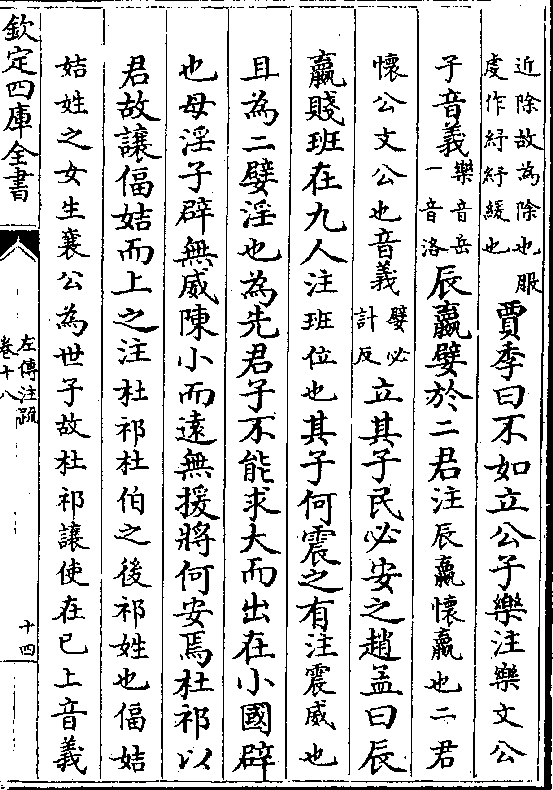 近除故為除也服
虔作紓紓緩也
賈季曰不如立公子樂注樂文公
子音義
樂音岳
一音洛
辰嬴嬖於二君注辰嬴懷嬴也二君
懷公文公也音義
嬖必
計反
立其子民必安之趙孟曰辰
嬴賤班在九人注班位也其子何震之有注震威也
且為二嬖淫也為先君子不能求大而出在小國辟
也母淫子辟無威陳小而遠無援將何安焉杜祁以
君故讓偪姞而上之注杜祁杜伯之後祁姓也偪姞
姞姓之女生襄公為世子故杜祁讓使在已上音義
欽定四庫全書
左傳注疏
卷十八
十四